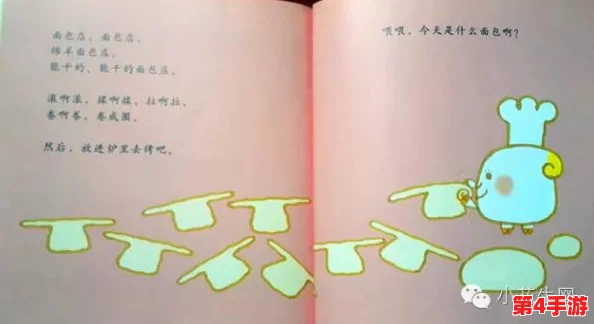 面包店，面包店。
绵羊面包店。
能干的、能干的面包店。
滚啊滚，揉啊揉，拉啊拉，
卷啊卷，卷成圈。
然后，放进炉里去烤吧。
喂喂，今天是什么面包啊？
小花生网
第4手游